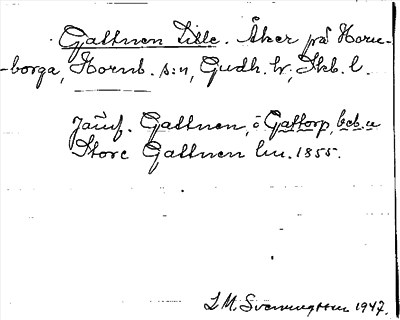 Galtnen Lille. Åker på Horn-
-borga, Hornb. s:n, Gudh. hr, Skb. l.
Jämf. Galtnen, i Galtorp, beb. o
Store Galtnen lm. 1855.
L M. Svenungsson 1947.